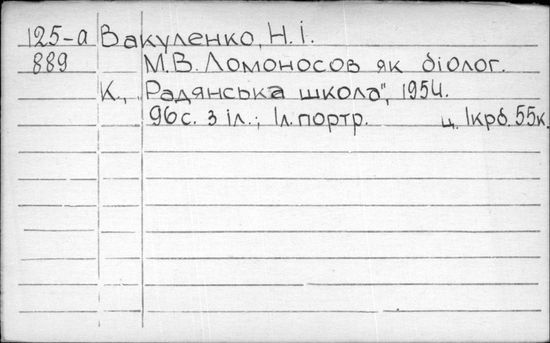 125-а Вакуленко, Н.І.
889 М.В. Ломоносов як біолог.
К., „Радянська школа", 1954.
96 с. з іл.; 1 л. портр. ц. 1крб. 55к.